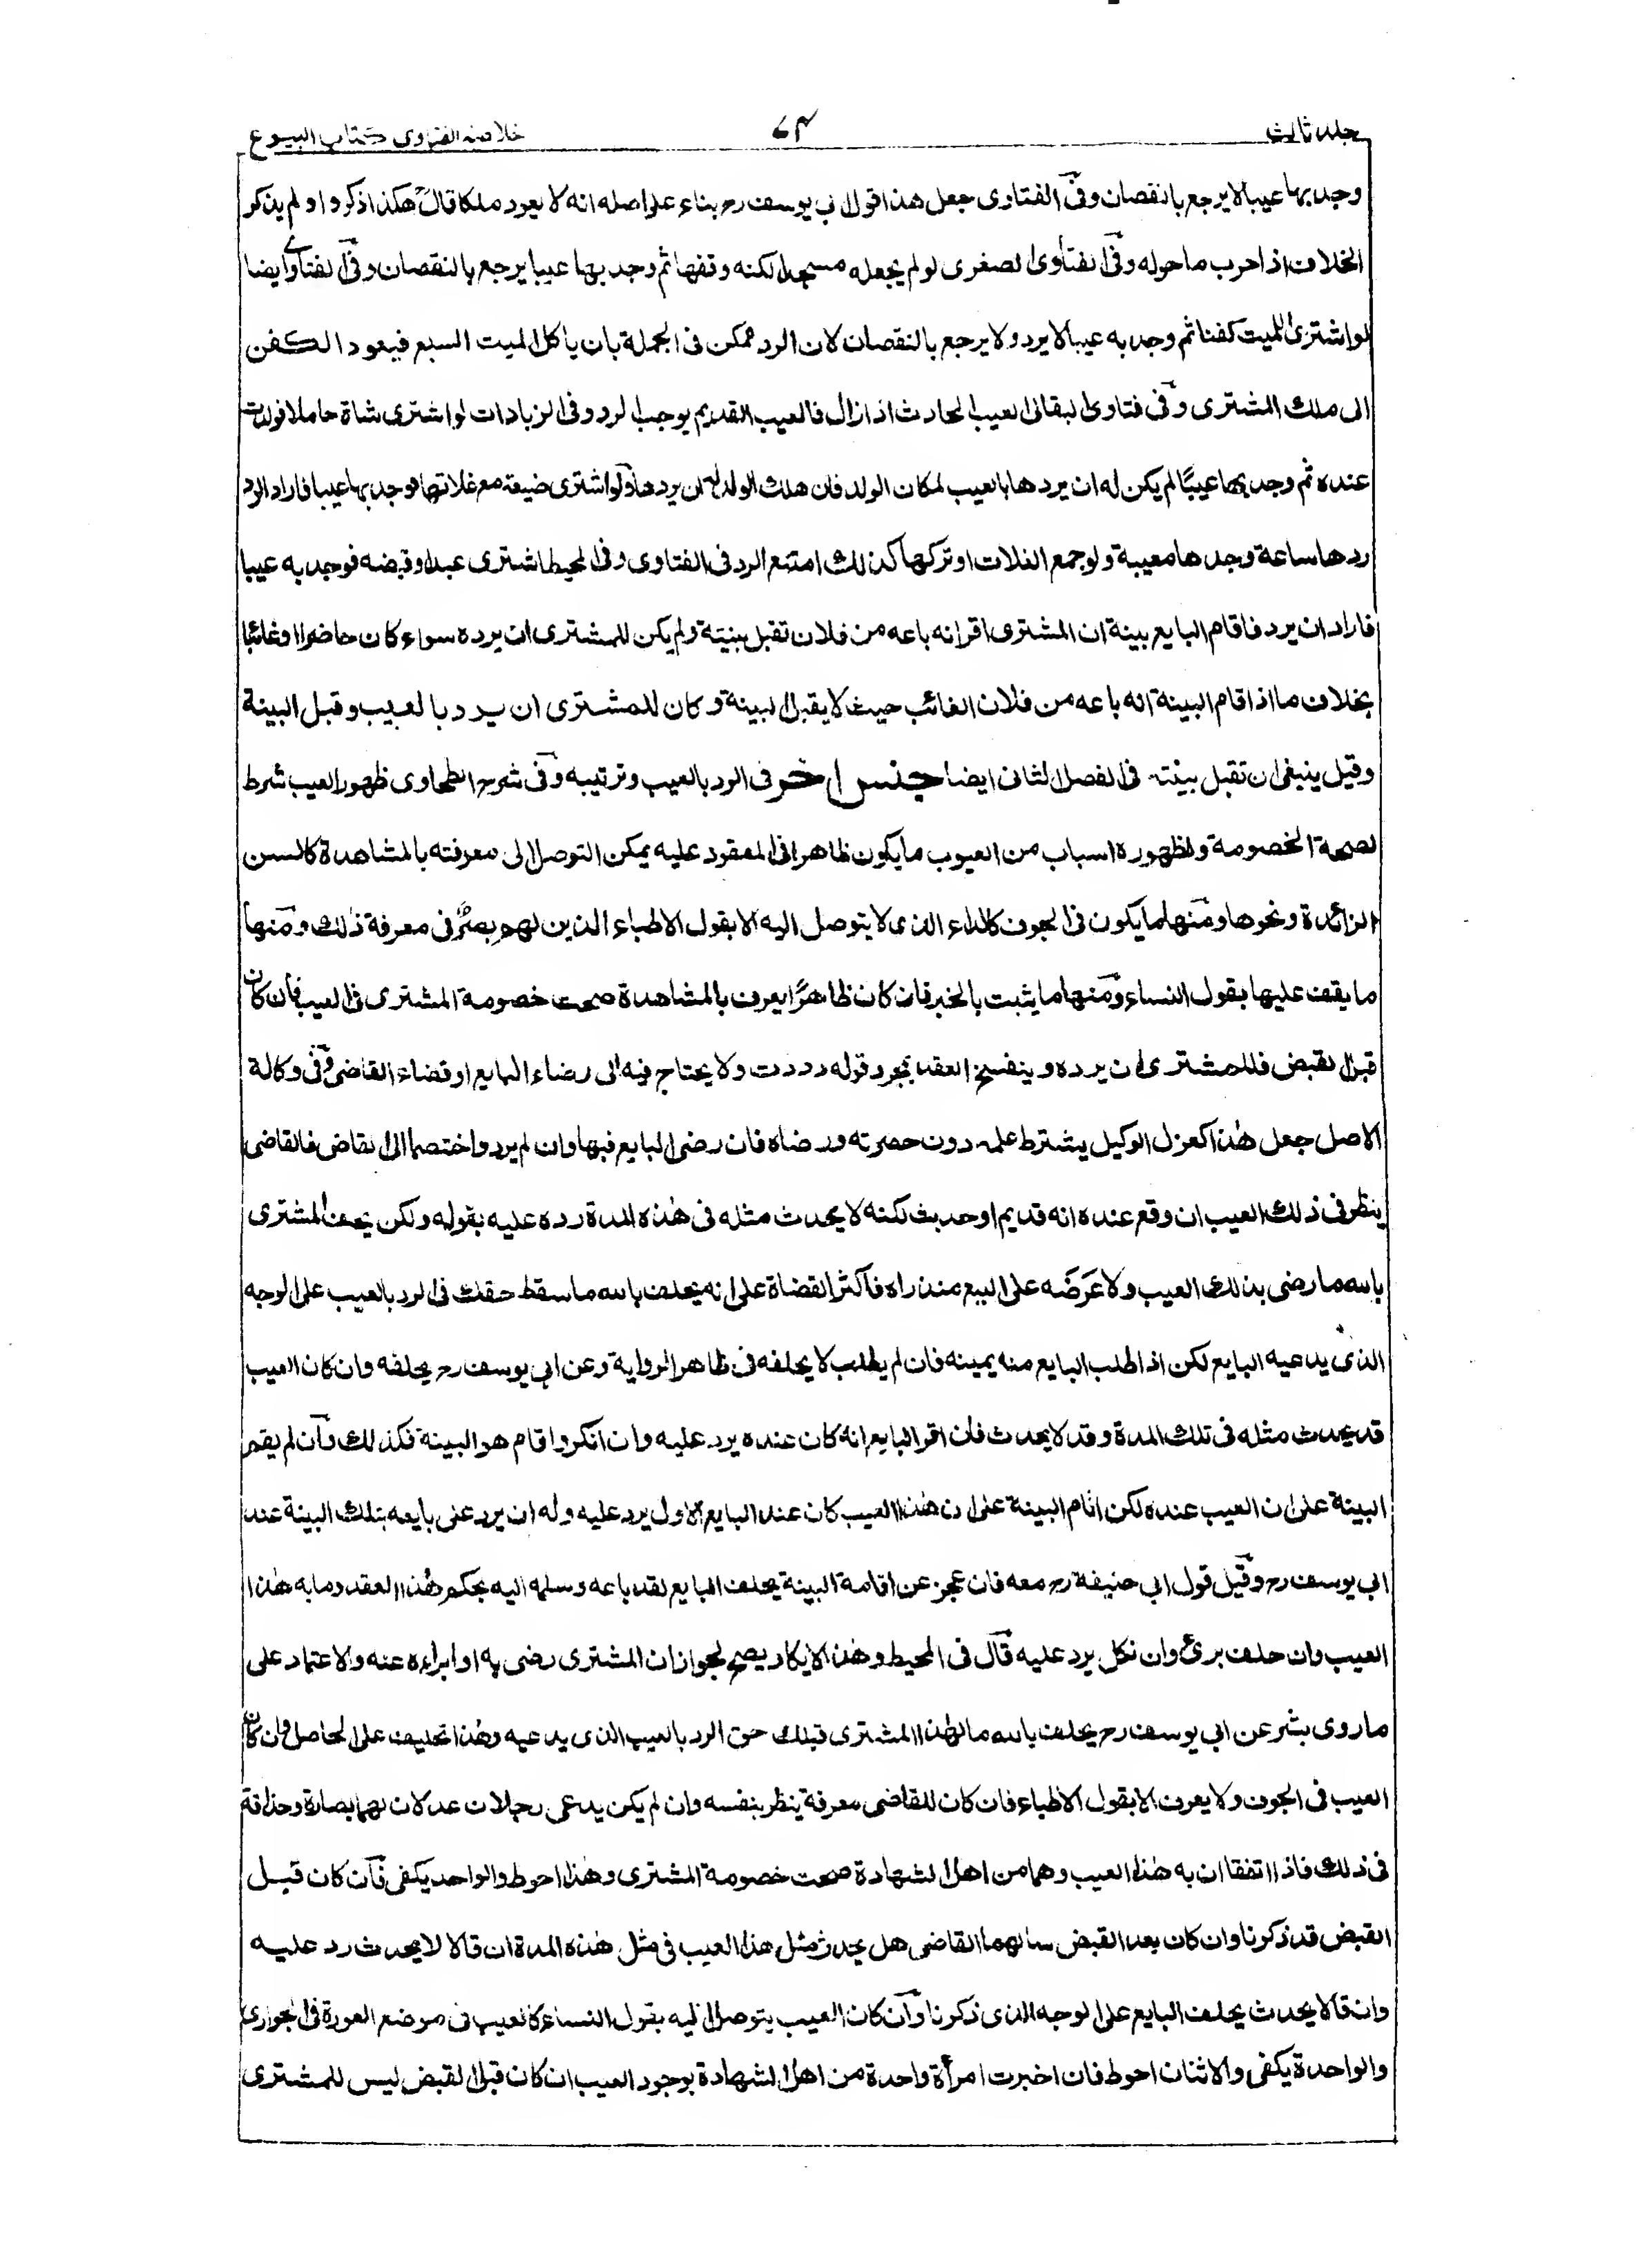 جلد ثالث ۷۳ خلاصة الفتاوى كتاب البيوع
وجد بها عيبا لا يرجع بالنقصان وفى الفتاوى جعل هذا قول ابى يوسف رح بناء على اصله انه لا يعود ملكا قال رح هكذا ذكروا ولم يذكر
الخلاف اذا خرب ما حوله وفى الفتاوى الصغرى لو لم يجعله مسجدا لكنه وقفها ثم وجد بها عيبا يرجع بالنقصان وفى الفتاوى ايضا
لو اشترى للميت كفنا ثم وجد به عيبا لا يرد ولا يرجع بالنقصان لان الرد ممكن فى الجملة بان ياكل الميت السبع فيعود الكفن
الى ملك المشترى وفى فتاوى البقالى العيب الحادث اذا زال فالعيب القديم يوجب الرد وفى الزيادات لو اشترى شاة حاملا فولدت
عنده ثم وجد بها عيبًا لم يكن له ان يردها بالعيب لمكان الولد فان هلك الولد له ان يردها ولو اشترى ضيعة مع غلاتها فوجد بها عيبا فاراد الرد
ردها ساعة وجدها معيبة ولو جمع الغلات او تركها كذلك امتنع الرد فى الفتاوى وفى المحيط اشترى عبدا وقبضه فوجد به عيبا
فاراد ان يرد فاقام البايع بينة ان المشترى اقر انه باعه من فلان تقبل بينته ولم يكن للمشترى ان يرده سواء كان حاضرا او غائبا
بخلاف ما اذا اقام البينة انه باعه من فلان الغائب حيث لا يقبل البينة وكان للمشترى ان يرد بالعيب وقبل البينة
وقيل ينبغى ان تقبل بينته فى الفصل الثانى ايضا جنس اخر فى الرد بالعيب وترتيبه وفى شرح الطحاوى ظهور العيب شرط
لصحة الخصومة ولظهوره اسباب من العيوب ما يكون ظاهرا فى المعقود عليه يمكن التوصل الى معرفته بالمشاهدة كالسن
الزائدة ونحوها ومنها ما يكون فى الجوف كالداء الذى لا يتوصل اليه الا بقول الاطباء الذين لهم بصر فى معرفة ذلك ومنها
ما يقف عليها بقول النساء ومنها ما يثبت بالخبر فان كان ظاهرًا يعرف بالمشاهدة صحت خصومة المشترى فى العيب فان كان
قبل القبض فللمشترى ان يرده وينفسخ العقد بمجرد قوله رددت ولا يحتاج فيه الى رضاء البايع او قضاء القاضى وفى وكالة
الاصل جعل هذا كعزل الوكيل يشترط علمه دون حضرته ورضاه فان رضى البايع فبها وان لم يرد واختصما الى القاضى فالقاضى
ينظر فى ذلك العيب ان وقع عنده انه قديم او حديث لكنه لا يحدث مثله فى هذه المدة رده عليه بقوله ولكن يحلف المشترى
بالله ما رضى بذلك العيب ولا عَرَضَه على البيع منذ راه فاكثر القضاة على انه يحلف بالله ما سقط حقك فى الرد بالعيب على الوجه
الذى يدعيه البايع لكن اذا طلب البايع منه يمينه فان لم يطلب لا يحلفه فى ظاهر الرواية وعن ابى يوسف رح يحلفه وان كان العيب
قد يحدث مثله فى تلك المدة وقد لا يحدث فان اقر البايع انه كان عنده يرد عليه وان انكر واقام هو البينة فكذلك وان لم يقم
البينة على ان العيب عنده لكن اقام البينة على ان هذا العيب كان عند البايع الاول يرد عليه وله ان يرد على بايعه بتلك البينة عند
ابى يوسف رح وقيل قول ابى حنيفة رح معه فان عجز عن اقامة البينة يحلف البايع لقد باعه وسلمه اليه بحكم هذا العقد وما به هذا
العيب وان حلف برئ وان نكل يرد عليه قال فى المحيط وهذا لا يكاد يصح لجواز ان المشترى رضى به او ابراءه عنه والاعتماد على
ما روى بشر عن ابى يوسف رح يحلف بالله ما لهذا المشترى قبلك حق الرد بالعيب الذى يدعيه وهذا تحليف على الحاصل وان كان
العيب فى الجوف ولا يعرف الا بقول الاطباء فان كان للقاضى معرفة ينظر بنفسه وان لم يكن يدعى رجلان عدلان لهما بصارة وحذاقة
فى ذلك فاذا اتفقا ان به هذا العيب وهما من اهل الشهادة صحت خصومة المشترى وهذا احوط والواحد يكفى فان كان قبل
القبض قد ذكرنا وان كان بعد القبض سالهما القاضى هل يحدث مثل هذا العيب فى مثل هذه المدة ان قالا لا يحدث رد عليه
وان قالا يحدث يحلف البايع على الوجه الذى ذكرنا وان كان العيب يتوصل اليه بقول النساء كالعيب فى موضع العورة فى الجوارى
والواحدة يكفى والاثنان احوط فان اخبرت امرأة واحدة من اهل الشهادة بوجود العيب ان كان قبل القبض ليس للمشترى